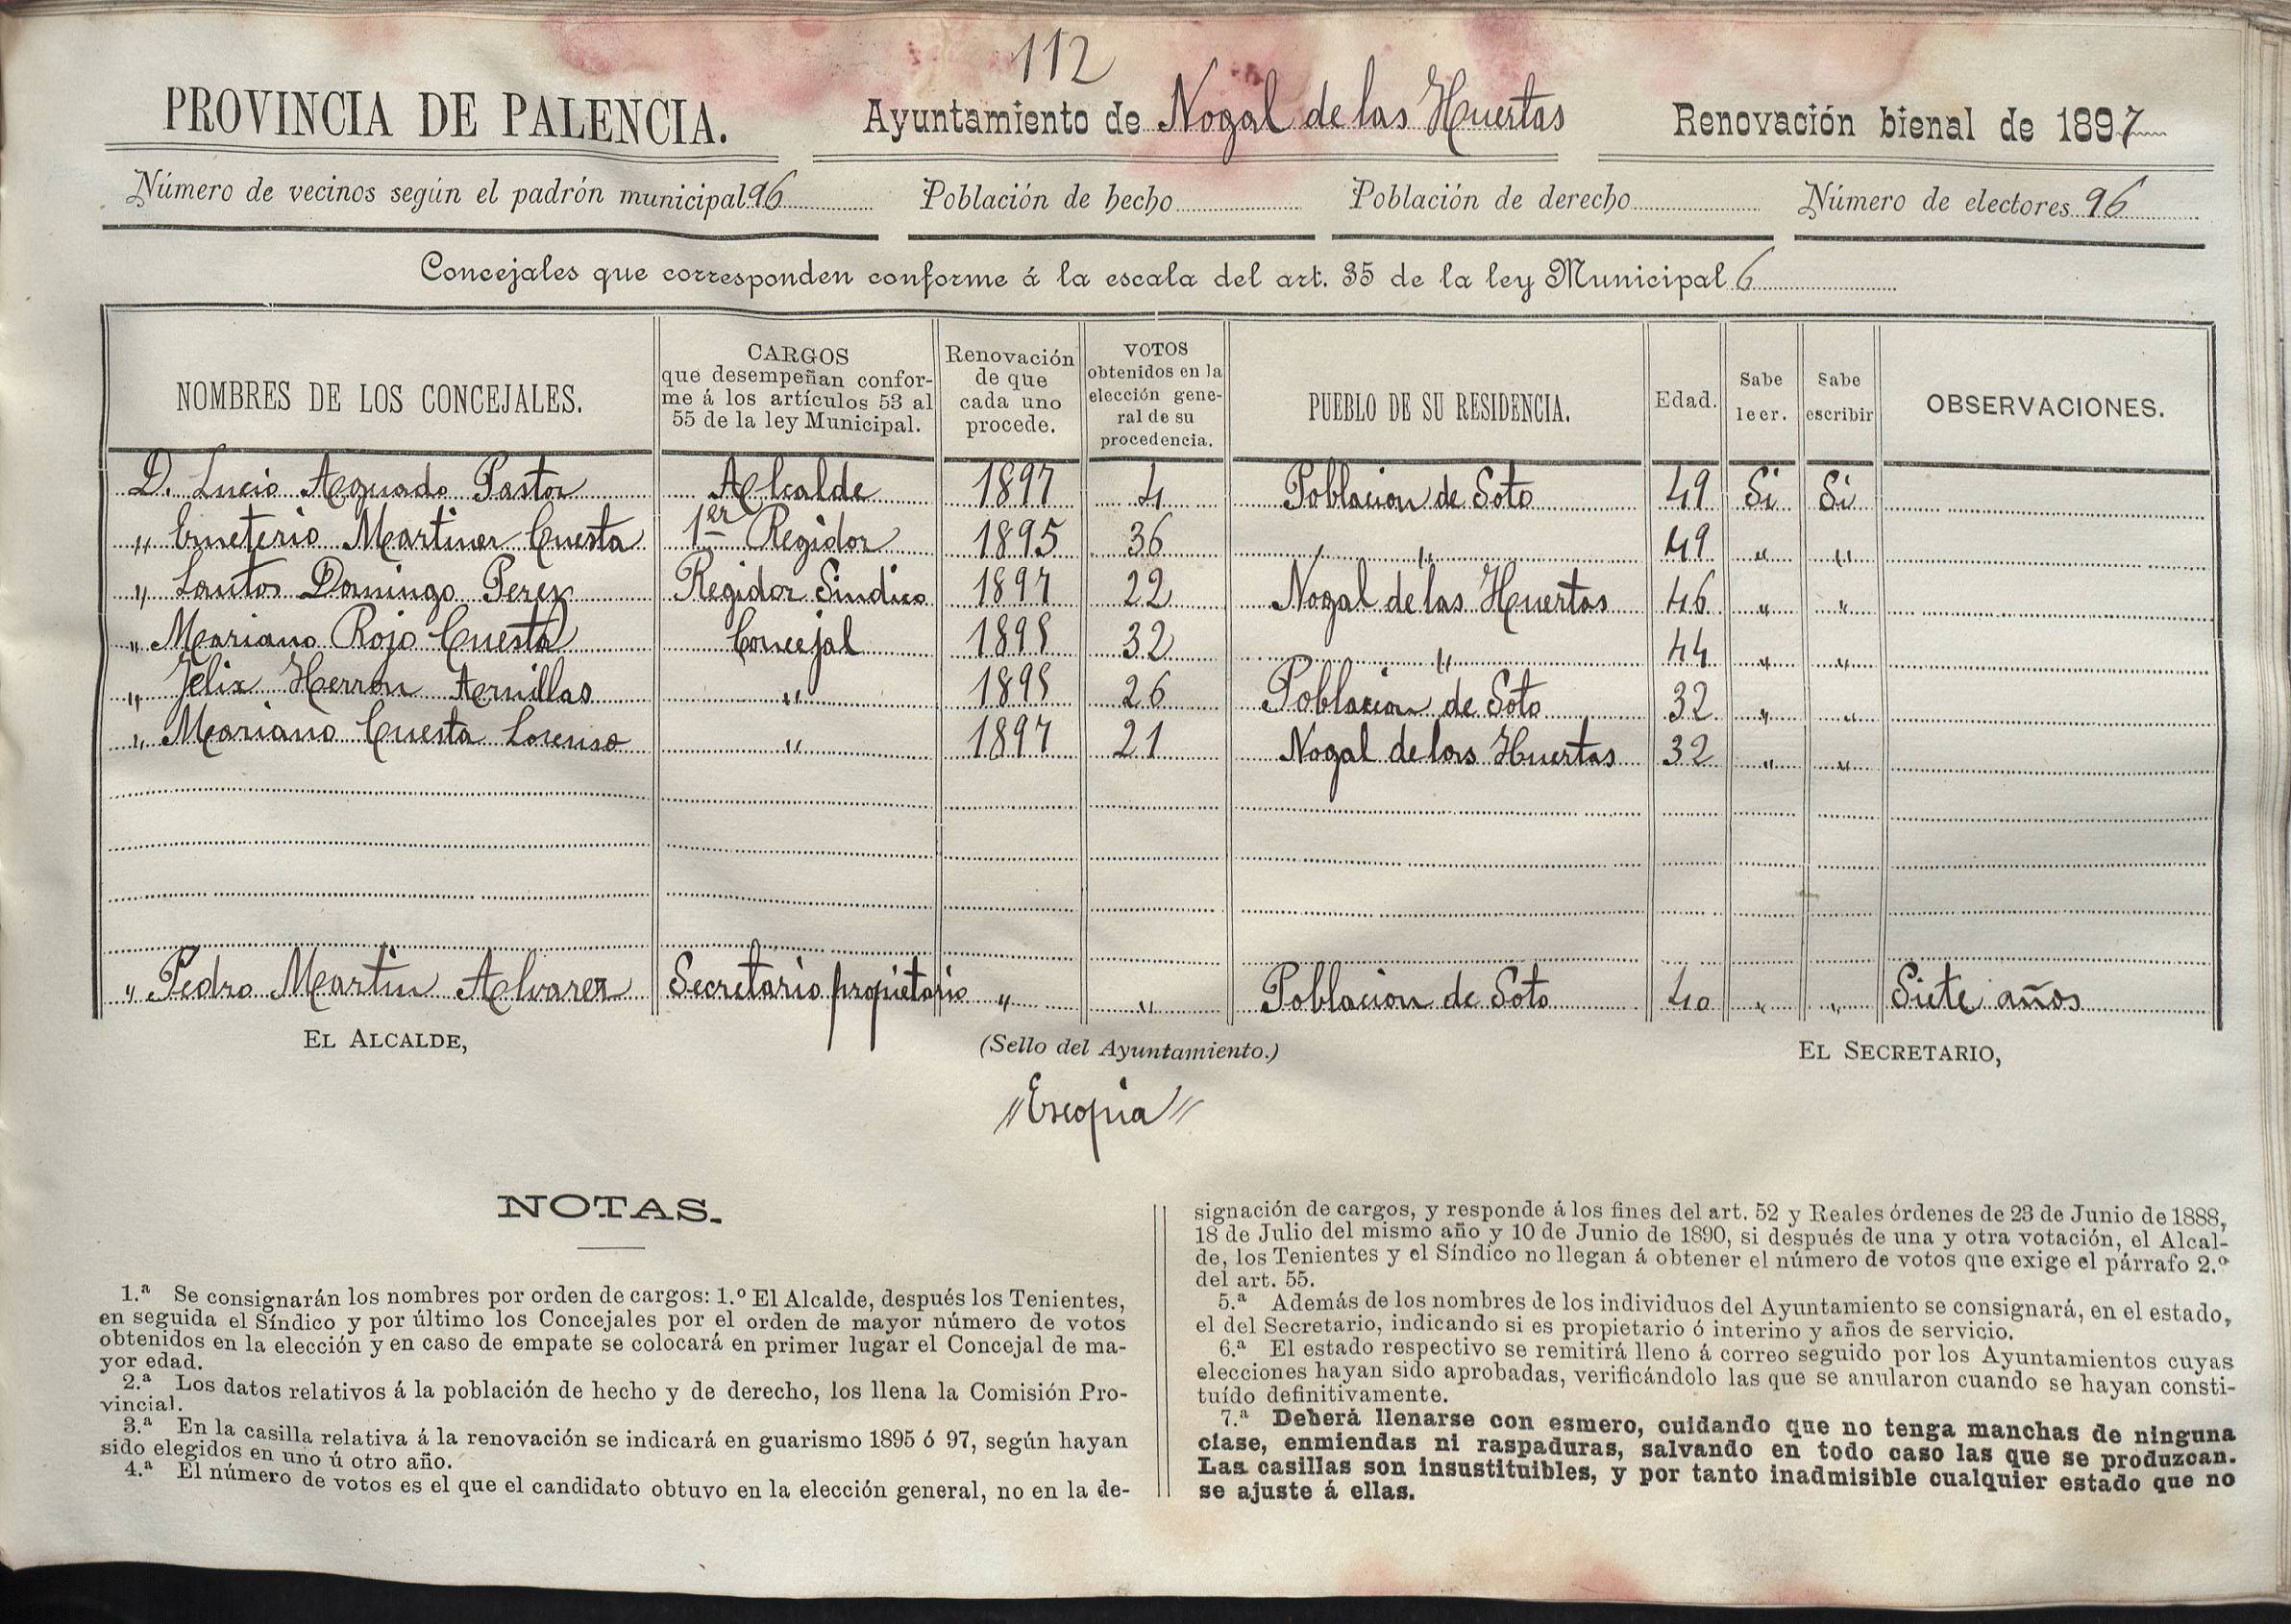 112
PROVINCIA DE PALENCIA. Ayuntamiento de Nogal de las Huertas Renovación bienal de 1897
Número de vecinos según el padrón municipal 96 Población de hecho Población de derecho Número de electores 96
Concejales que corresponden conforme á la escala del art. 35 de la ley Municipal 6
NOMBRES DE LOS CONCEJALES. CARGOS que desempeñan conforme á los artículos 53 al 55 de la ley Municipal. Renovación de que cada uno procede. VOTOS obtenidos en la elección general de su procedencia. PUEBLO DE SU RESIDENCIA. Edad. Sabe leer. Sabe escribir OBSERVACIONES.
D. Lucio Aguado Pastor Alcalde 1897 4 Poblacion de Soto 49 Si Si
" Emeterio Martinez Cuesta 1er Regidor 1895 36 " 49 " "
" Santos Domingo Perez Regidor Sindico 1897 22 Nogal de las Huertas 46 " "
" Mariano Rojo Cuesta Concejal 1895 32 " 44 " "
" Felix Herrón Arnillas " 1895 26 Poblacion de Soto 32 " "
" Mariano Cuesta Lorenso " 1897 21 Nogal de las Huertas 32 " "
" Pedro Martin Alvarez Secretario propietario " " Poblacion de Soto 40 " " Siete años
EL ALCALDE, (Sello del Ayuntamiento.) EL SECRETARIO,
"Es copia"
NOTAS.
1.ª Se consignarán los nombres por orden de cargos: 1.º El Alcalde, después los Tenientes,
en seguida el Síndico y por último los Concejales por el orden de mayor número de votos
obtenidos en la elección y en caso de empate se colocará en primer lugar el Concejal de ma-
yor edad.
2.ª Los datos relativos á la población de hecho y de derecho, los llena la Comisión Pro-
vincial.
3.ª En la casilla relativa á la renovación se indicará en guarismo 1895 ó 97, según hayan
sido elegidos en uno ú otro año.
4.ª El número de votos es el que el candidato obtuvo en la elección general, no en la de-
signación de cargos, y responde á los fines del art. 52 y Reales órdenes de 23 de Junio de 1888,
18 de Julio del mismo año y 10 de Junio de 1890, si después de una y otra votación, el Alcal-
de, los Tenientes y el Síndico no llegan á obtener el número de votos que exige el párrafo 2.º
del art. 55.
5.ª Además de los nombres de los individuos del Ayuntamiento se consignará, en el estado,
el del Secretario, indicando si es propietario ó interino y años de servicio.
6.ª El estado respectivo se remitirá lleno á correo seguido por los Ayuntamientos cuyas
elecciones hayan sido aprobadas, verificándolo las que se anularon cuando se hayan consti-
tuído definitivamente.
7.ª Deberá llenarse con esmero, cuidando que no tenga manchas de ninguna
clase, enmiendas ni raspaduras, salvando en todo caso las que se produzcan.
Las casillas son insustituibles, y por tanto inadmisible cualquier estado que no
se ajuste á ellas.